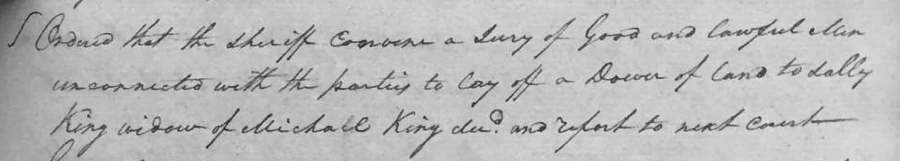 Ordered that the Sheriff convene a Jury of Good and lawful Men
unconnected with the parties to lay off a Dower of land to Sally
King widow of Michael King decd. and report to next court